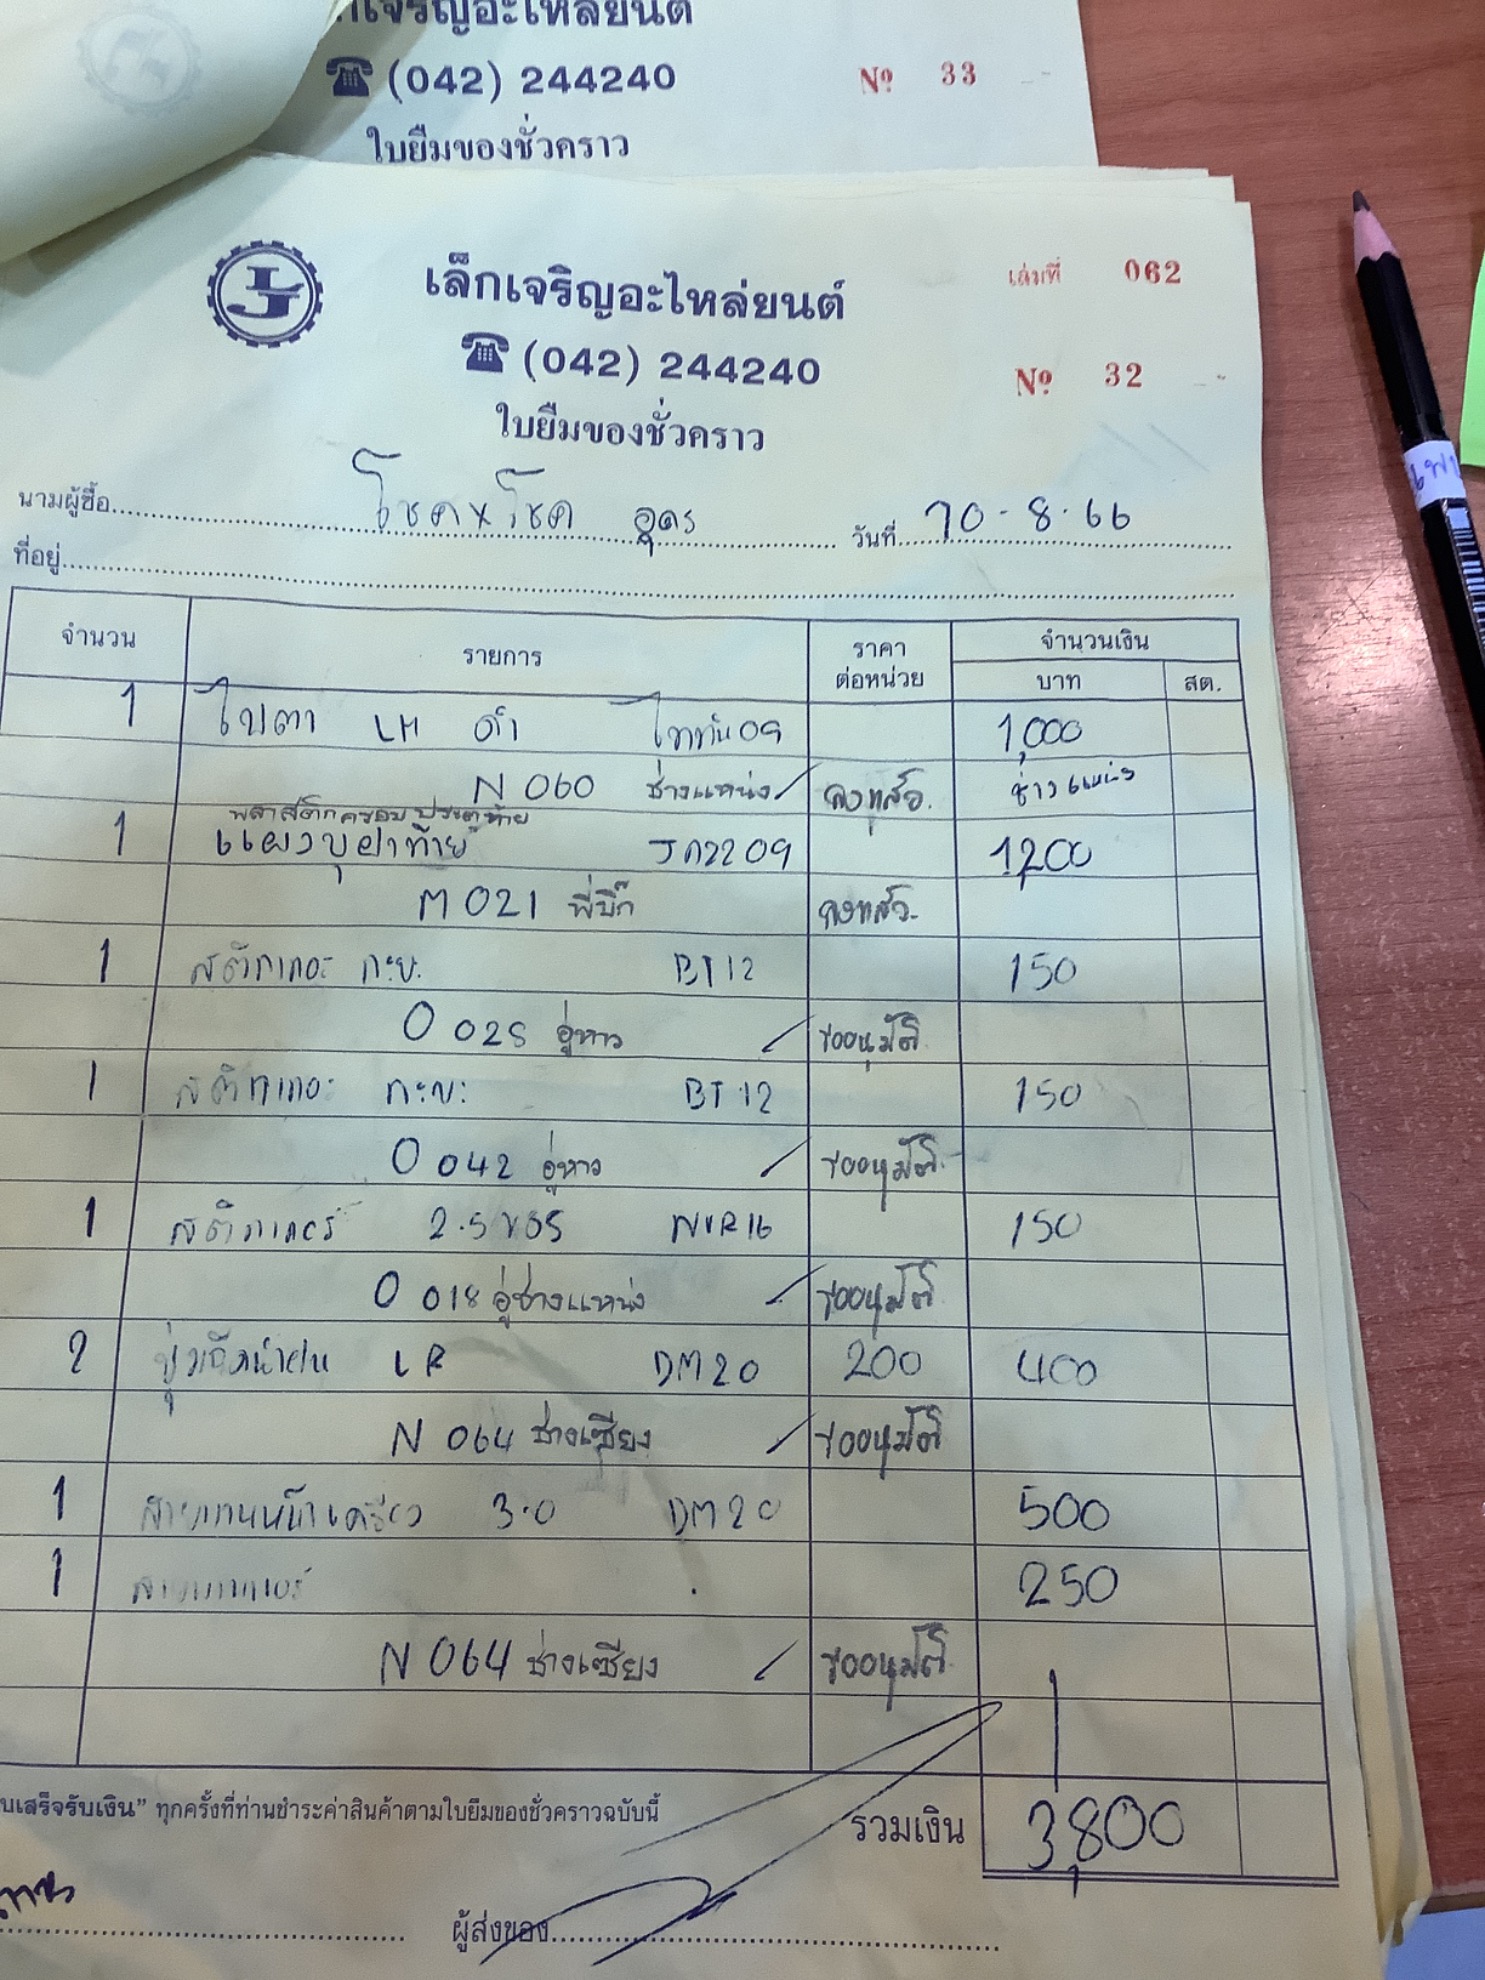 (042) 244240
Nº 33
ใบยืมของชั่วคราว
เล็กเจริญอะไหล่ยนต์
เล่มที่ 062
(042) 244240
Nº 32
ใบยืมของชั่วคราว
นามผู้ซื้อ โชค x โชค อุดร วันที่ 10-8-66
ที่อยู่
จำนวน รายการ ราคาต่อหน่วย จำนวนเงิน
บาท สต.
1 ไฟตา LH ดำ ไททัน 09 1,000
N 060 ช่างแหน่ง ลงแล้ว. ช่างแหน่ง
พลาสติกครอบประตูท้าย
1 แผงบุฝาท้าย JAZZ 09 1,200
M 021 พี่บิ๊ก ลงแล้ว.
1 สติกเกอะ กะบะ BT 12 150
O 028 อู่หาว ขออนุมัติ
1 สติกเกอะ กะบะ BT 12 150
O 042 อู่หาว ขออนุมัติ
1 สติกเกอร์ 2.5 NVR16 150
O 018 อู่ช่างแหน่ง ขออนุมัติ
2 LR DM20 200 400
N 064 ช่างเซียง ขออนุมัติ
1 3.0 DM20 500
1 250
N 064 ช่างเซียง ขออนุมัติ
บเสร็จรับเงิน” ทุกครั้งที่ท่านชำระค่าสินค้าตามใบยืมของชั่วคราวฉบับนี้
รวมเงิน 3,800
ผู้ส่งของ